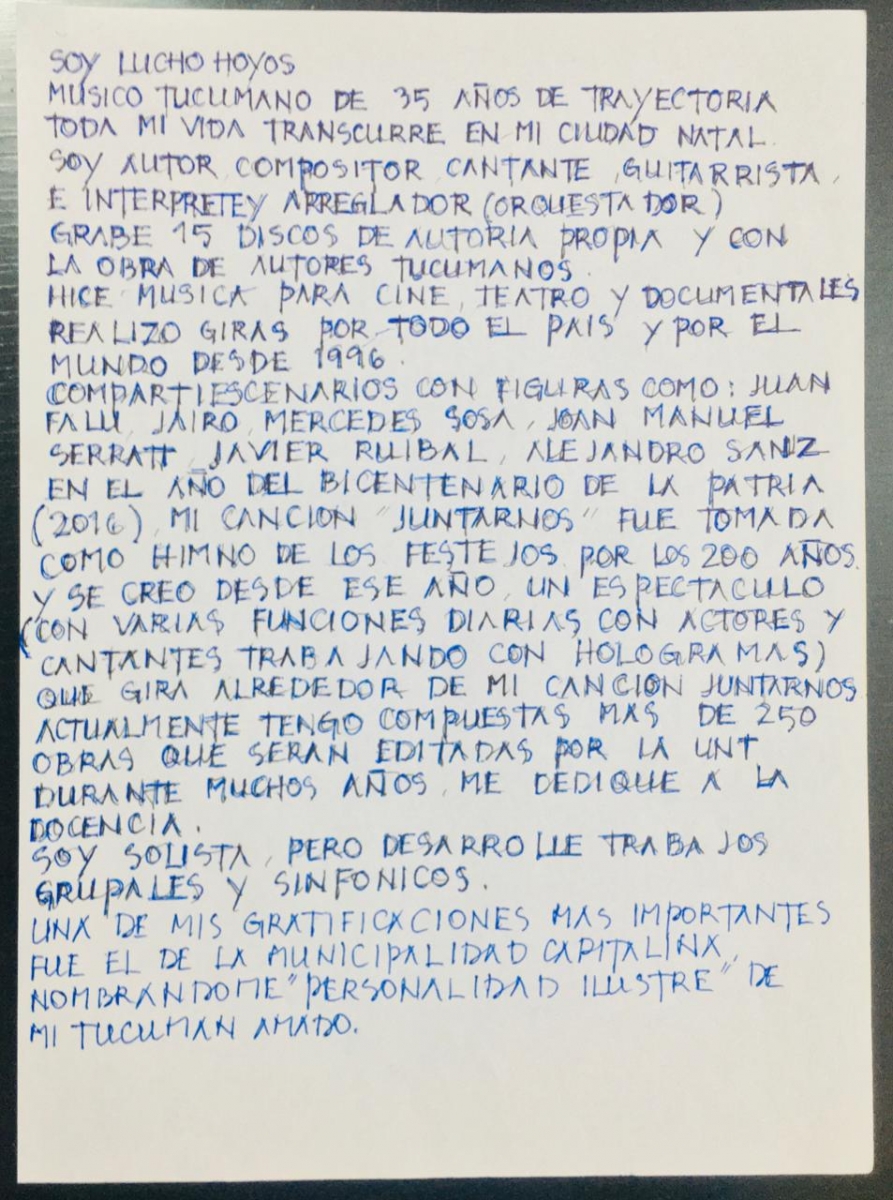 SOY LUCHO HOYOS
MUSICO TUCUMANO DE 35 AÑOS DE TRAYECTORIA
TODA MI VIDA TRANSCURRE EN MI CIUDAD NATAL.
SOY AUTOR, COMPOSITOR, CANTANTE, GUITARRISTA,
E INTERPRETE Y ARREGLADOR (ORQUESTADOR)
GRABE 15 DISCOS DE AUTORIA PROPIA Y CON
LA OBRA DE AUTORES TUCUMANOS.
HICE MUSICA PARA CINE, TEATRO Y DOCUMENTALES
REALIZO GIRAS POR TODO EL PAIS Y POR EL
MUNDO DESDE 1996.
COMPARTI ESCENARIOS CON FIGURAS COMO: JUAN
FALU, JAIRO, MERCEDES SOSA, JOAN MANUEL
SERRATT, JAVIER RUIBAL, ALEJANDRO SANZ
EN EL AÑO DEL BICENTENARIO DE LA PATRIA
(2016), MI CANCION "JUNTARNOS" FUE TOMADA
COMO HIMNO DE LOS FESTEJOS POR LOS 200 AÑOS.
Y SE CREO DESDE ESE AÑO, UN ESPECTACULO
(CON VARIAS FUNCIONES DIARIAS CON ACTORES Y
CANTANTES TRABAJANDO CON HOLOGRAMAS)
QUE GIRA ALREDEDOR DE MI CANCION JUNTARNOS
ACTUALMENTE TENGO COMPUESTAS MAS DE 250
OBRAS QUE SERAN EDITADAS POR LA UNT
DURANTE MUCHOS AÑOS, ME DEDIQUE A LA
DOCENCIA.
SOY SOLISTA, PERO DESARROLLE TRABAJOS
GRUPALES Y SINFONICOS.
UNA DE MIS GRATIFICACIONES MAS IMPORTANTES
FUE EL DE LA MUNICIPALIDAD CAPITALINA,
NOMBRANDOME "PERSONALIDAD ILUSTRE" DE
MI TUCUMAN AMADO.